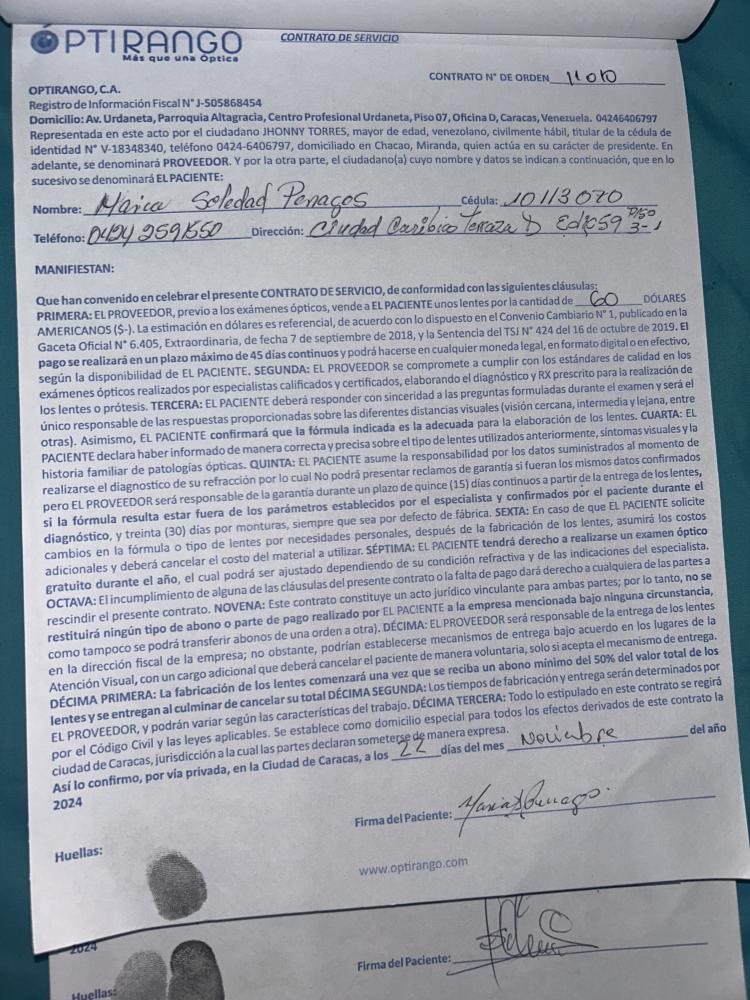 OPTIRANGO
Más que una Óptica
CONTRATO DE SERVICIO
CONTRATO N° DE ORDEN 11010
OPTIRANGO, C.A.
Registro de Información Fiscal N° J-505868454
Domicilio: Av. Urdaneta, Parroquia Altagracia, Centro Profesional Urdaneta, Piso 07, Oficina D, Caracas, Venezuela. 04246406797
Representada en este acto por el ciudadano JHONNY TORRES, mayor de edad, venezolano, civilmente hábil, titular de la cédula de
identidad N° V-18348340, teléfono 0424-6406797, domiciliado en Chacao, Miranda, quien actúa en su carácter de presidente. En
adelante, se denominará PROVEEDOR. Y por la otra parte, el ciudadano(a) cuyo nombre y datos se indican a continuación, que en lo
sucesivo se denominará EL PACIENTE:
Nombre: Maira Soledad Penagos Cédula: 10113070
Teléfono: 0424 2591550 Dirección: Ciudad Caribia Terraza D Edf 059 Piso 3-1
MANIFIESTAN:
Que han convenido en celebrar el presente CONTRATO DE SERVICIO, de conformidad con las siguientes cláusulas:
PRIMERA: EL PROVEEDOR, previo a los exámenes ópticos, vende a EL PACIENTE unos lentes por la cantidad de 60 DÓLARES
AMERICANOS ($-). La estimación en dólares es referencial, de acuerdo con lo dispuesto en el Convenio Cambiario N° 1, publicado en la
Gaceta Oficial N° 6.405, Extraordinaria, de fecha 7 de septiembre de 2018, y la Sentencia del TSJ N° 424 del 16 de octubre de 2019. El
pago se realizará en un plazo máximo de 45 días continuos y podrá hacerse en cualquier moneda legal, en formato digital o en efectivo,
según la disponibilidad de EL PACIENTE. SEGUNDA: EL PROVEEDOR se compromete a cumplir con los estándares de calidad en los
exámenes ópticos realizados por especialistas calificados y certificados, elaborando el diagnóstico y RX prescrito para la realización de
los lentes o prótesis. TERCERA: EL PACIENTE deberá responder con sinceridad a las preguntas formuladas durante el examen y será el
único responsable de las respuestas proporcionadas sobre las diferentes distancias visuales (visión cercana, intermedia y lejana, entre
otras). Asimismo, EL PACIENTE confirmará que la fórmula indicada es la adecuada para la elaboración de los lentes. CUARTA: EL
PACIENTE declara haber informado de manera correcta y precisa sobre el tipo de lentes utilizados anteriormente, síntomas visuales y la
historia familiar de patologías ópticas. QUINTA: EL PACIENTE asume la responsabilidad por los datos suministrados al momento de
realizarse el diagnostico de su refracción por lo cual No podrá presentar reclamos de garantía si fueran los mismos datos confirmados
pero EL PROVEEDOR será responsable de la garantía durante un plazo de quince (15) días continuos a partir de la entrega de los lentes,
si la fórmula resulta estar fuera de los parámetros establecidos por el especialista y confirmados por el paciente durante el
diagnóstico, y treinta (30) días por monturas, siempre que sea por defecto de fábrica. SEXTA: En caso de que EL PACIENTE solicite
cambios en la fórmula o tipo de lentes por necesidades personales, después de la fabricación de los lentes, asumirá los costos
adicionales y deberá cancelar el costo del material a utilizar. SÉPTIMA: EL PACIENTE tendrá derecho a realizarse un examen óptico
gratuito durante el año, el cual podrá ser ajustado dependiendo de su condición refractiva y de las indicaciones del especialista.
OCTAVA: El incumplimiento de alguna de las cláusulas del presente contrato o la falta de pago dará derecho a cualquiera de las partes a
rescindir el presente contrato. NOVENA: Este contrato constituye un acto jurídico vinculante para ambas partes; por lo tanto, no se
restituirá ningún tipo de abono o parte de pago realizado por EL PACIENTE a la empresa mencionada bajo ninguna circunstancia,
como tampoco se podrá transferir abonos de una orden a otra). DÉCIMA: EL PROVEEDOR será responsable de la entrega de los lentes
en la dirección fiscal de la empresa; no obstante, podrían establecerse mecanismos de entrega bajo acuerdo en los lugares de la
Atención Visual, con un cargo adicional que deberá cancelar el paciente de manera voluntaria, solo si acepta el mecanismo de entrega.
DÉCIMA PRIMERA: La fabricación de los lentes comenzará una vez que se reciba un abono mínimo del 50% del valor total de los
lentes y se entregan al culminar de cancelar su total DÉCIMA SEGUNDA: Los tiempos de fabricación y entrega serán determinados por
EL PROVEEDOR, y podrán variar según las características del trabajo. DÉCIMA TERCERA: Todo lo estipulado en este contrato se regirá
por el Código Civil y las leyes aplicables. Se establece como domicilio especial para todos los efectos derivados de este contrato la
ciudad de Caracas, jurisdicción a la cual las partes declaran someterse de manera expresa.
Así lo confirmo, por vía privada, en la Ciudad de Caracas, a los 22 días del mes Noviembre del año
2024
Firma del Paciente:
Huellas:
www.optirango.com
2024
Firma del Paciente:
Huellas: